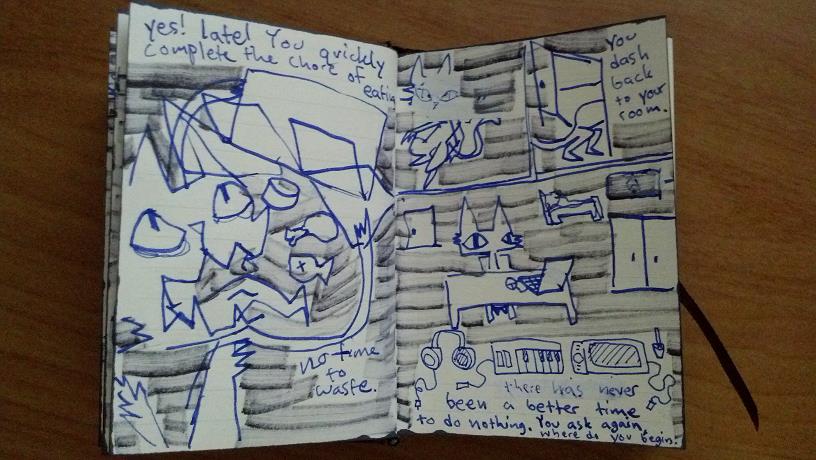 yes! late! You quickly
complete the chore of
eating
no time
to
waste.
You
dash
back
to your
room.
there has never
been a better time
to do nothing. You ask again,
where do you begin?